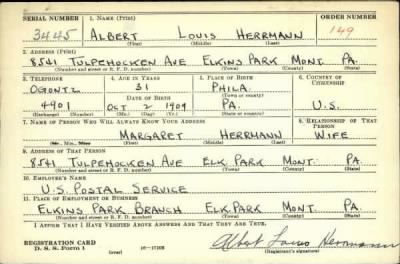 SERIAL NUMBER 1. NAME (Print) ORDER NUMBER
3445 ALBERT LOUIS HERRMANN 149
(First) (Middle) (Last)
2. ADDRESS (Print)
8541 TULPEHOCKEN AVE ELKINS PARK MONT. PA.
(Number and street or R. F. D. number) (Town) (County) (State)
3. TELEPHONE 4. AGE IN YEARS 5. PLACE OF BIRTH 6. COUNTRY OF CITIZENSHIP
OGONTZ 31 PHILA.
DATE OF BIRTH (Town or county)
4901 OCT 2 1909 PA. U.S.
(Exchange) (Number) (Mo.) (Day) (Yr.) (State or country)
7. NAME OF PERSON WHO WILL ALWAYS KNOW YOUR ADDRESS 8. RELATIONSHIP OF THAT PERSON
MARGARET HERRMANN WIFE
(Mr., Mrs., Miss) (First) (Middle) (Last)
9. ADDRESS OF THAT PERSON
8541 TULPEHOCKEN AVE ELK. PARK MONT. PA.
(Number and street or R. F. D. number) (Town) (County) (State)
10. EMPLOYER'S NAME
U.S. POSTAL SERVICE
11. PLACE OF EMPLOYMENT OR BUSINESS
ELKINS PARK BRANCH ELK. PARK MONT. PA.
(Number and street or R. F. D. number) (Town) (County) (State)
I AFFIRM THAT I HAVE VERIFIED ABOVE ANSWERS AND THAT THEY ARE TRUE.
REGISTRATION CARD
D. S. S. Form 1 (over) Albert Louis Herrmann